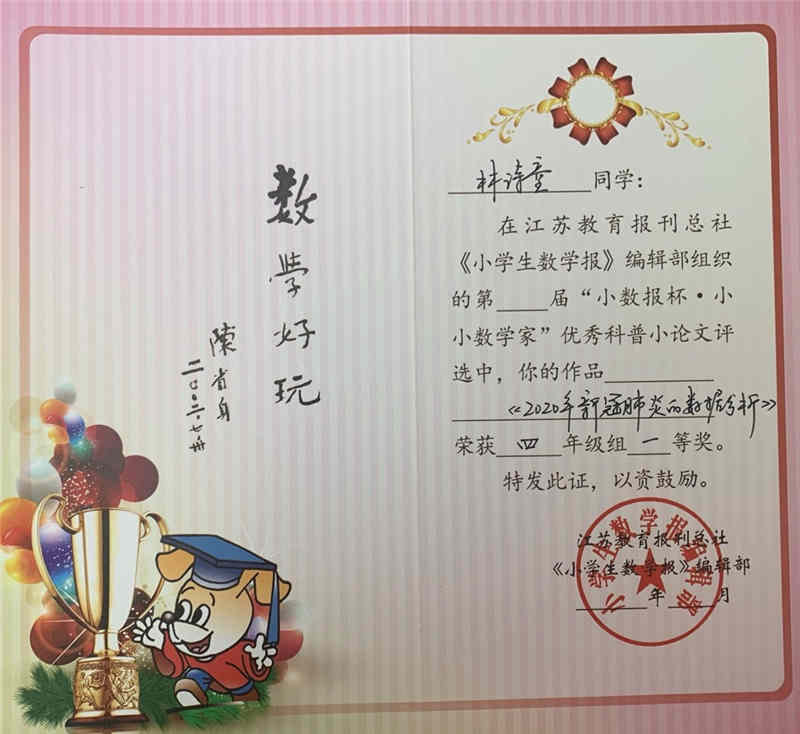 数学好玩
陳省身
二〇〇二.七.
林诗童 同学：
在江苏教育报刊总社
《小学生数学报》编辑部组织
的第____届“小数报杯·小
小数学家”优秀科普小论文评
选中，你的作品
《2020年新冠肺炎的数据分析》
荣获 四 年级组 一 等奖。
特发此证，以资鼓励。
江苏教育报刊总社
《小学生数学报》编辑部
____年____月
小学生数学报编辑部